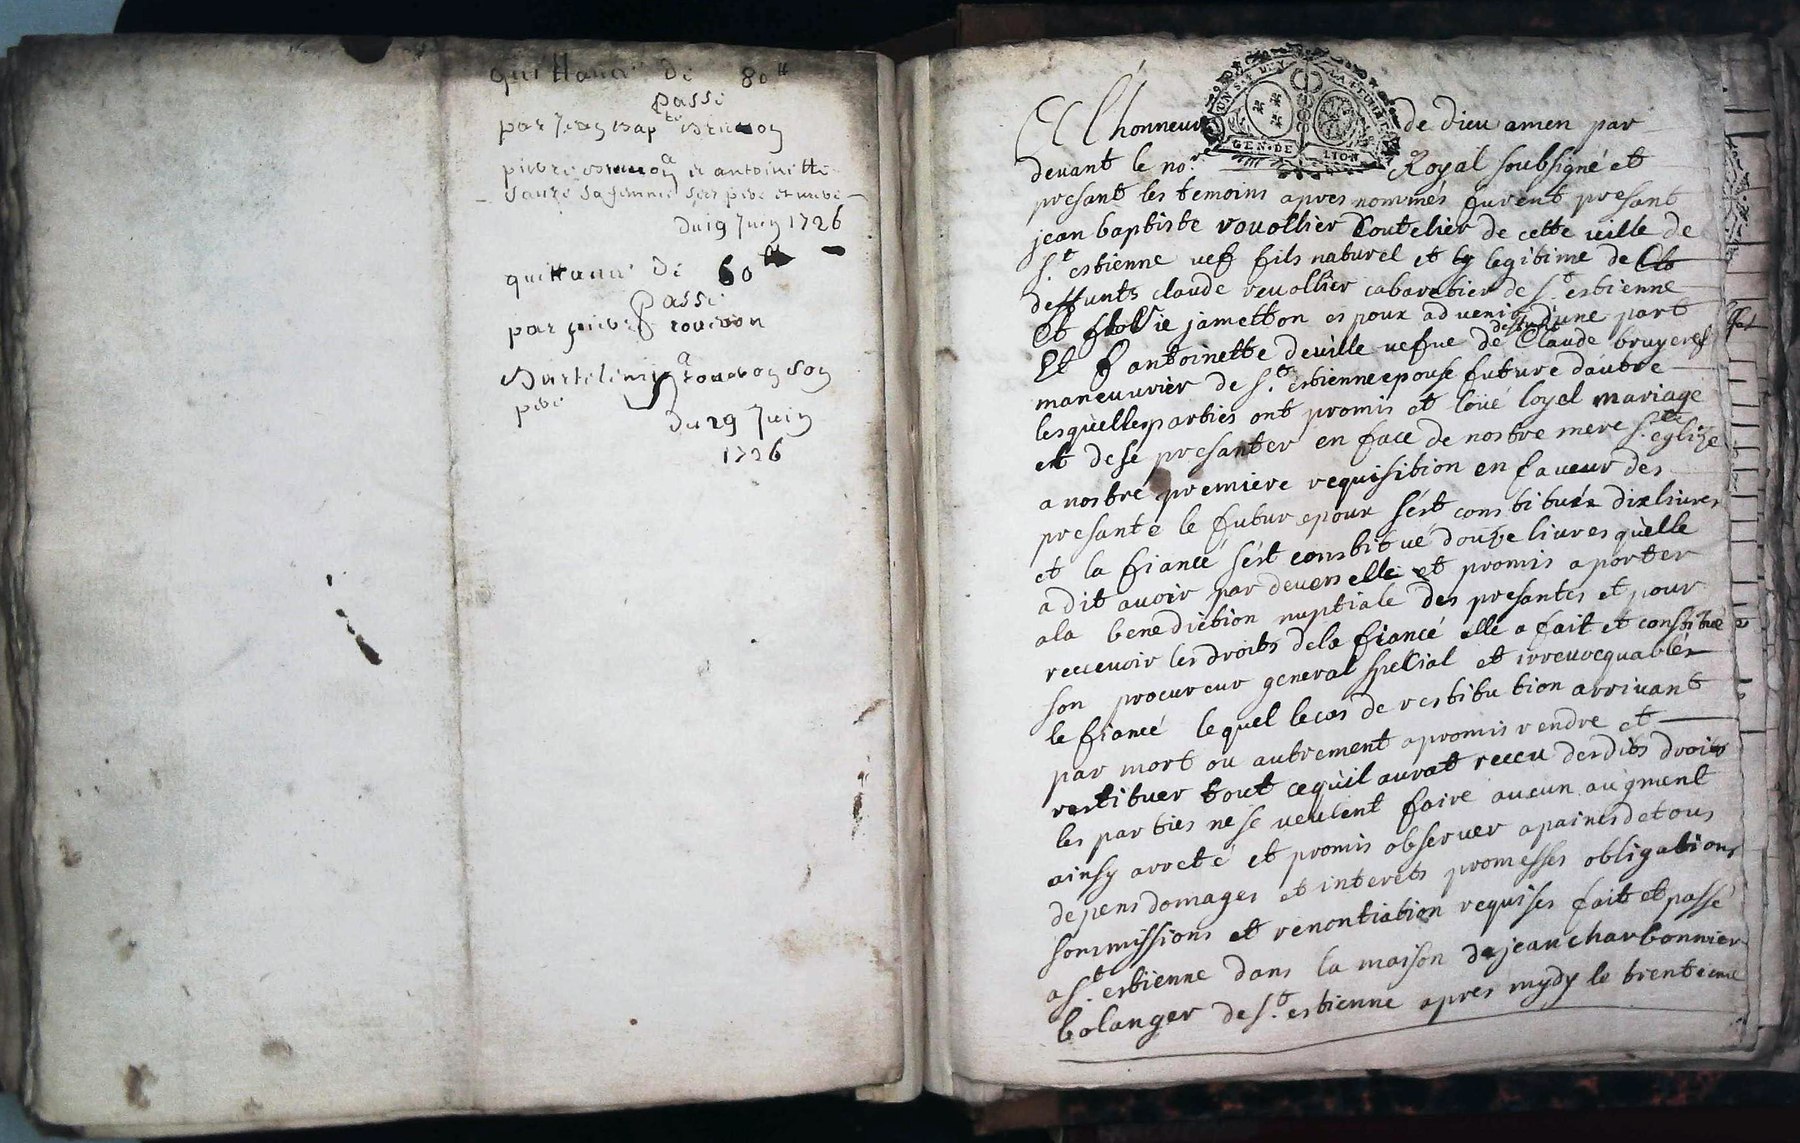 quittance de 80tt
passé
par Jean Bapte
pierre a antoinette
sauze sa femme ses pere et mere
du 19 Juin 1726
quittance de 60tt
passé
par pierre rouvron
Bartelemy a rouvron son
pere
du 29 Juin
1726
A l'honneur de dieu amen par
UN S. 4 D. LA FEUILLE
GEN. DE LION
devant le nore Royal soubsigné et
presant les temoins apres nommés furent presant
jean baptiste rovollier Coutelier de cette ville de
St estienne vef fils naturel et lg legitime de Clo
deffunts claude revollier cabaretier de St estienne
et flovie jametton espoux advenir d'une part
Et f antoinette deville vefve de deffunt Claude bruyeres
maneuvrier de St estienne epouse future d'autre
lesquelles parties ont promis et loüé loyal mariage
et de se presanter en face de nostre mere Ste eglize
a nostre premiere requisition en faveur des
presante le futur epoux s'est constitués dix livres
et la fiancé s'est constitué douze livres qu'elle
a dit avoir par devers elle et promis aporter
a la benediction nuptiale des presantes et pour
reccevoir les droits de la fiancé elle a fait et constitué
son procureur general special et irrevocquables
le fiancé lequel le cas de restitution arrivant
par mort ou autrement a promis rendre et
restituer tout ce qu'il aurat reccu desdits droits
les parties ne se veulent faire aucun augment
ainsy arreté et promis observer a paines de tous
depens domages et interets promesses obligations
sommissions et renontiation requises fait et passé
a St estienne dans la maison de jean charbonnier
bolanger de St estienne apres mydy le trentieme